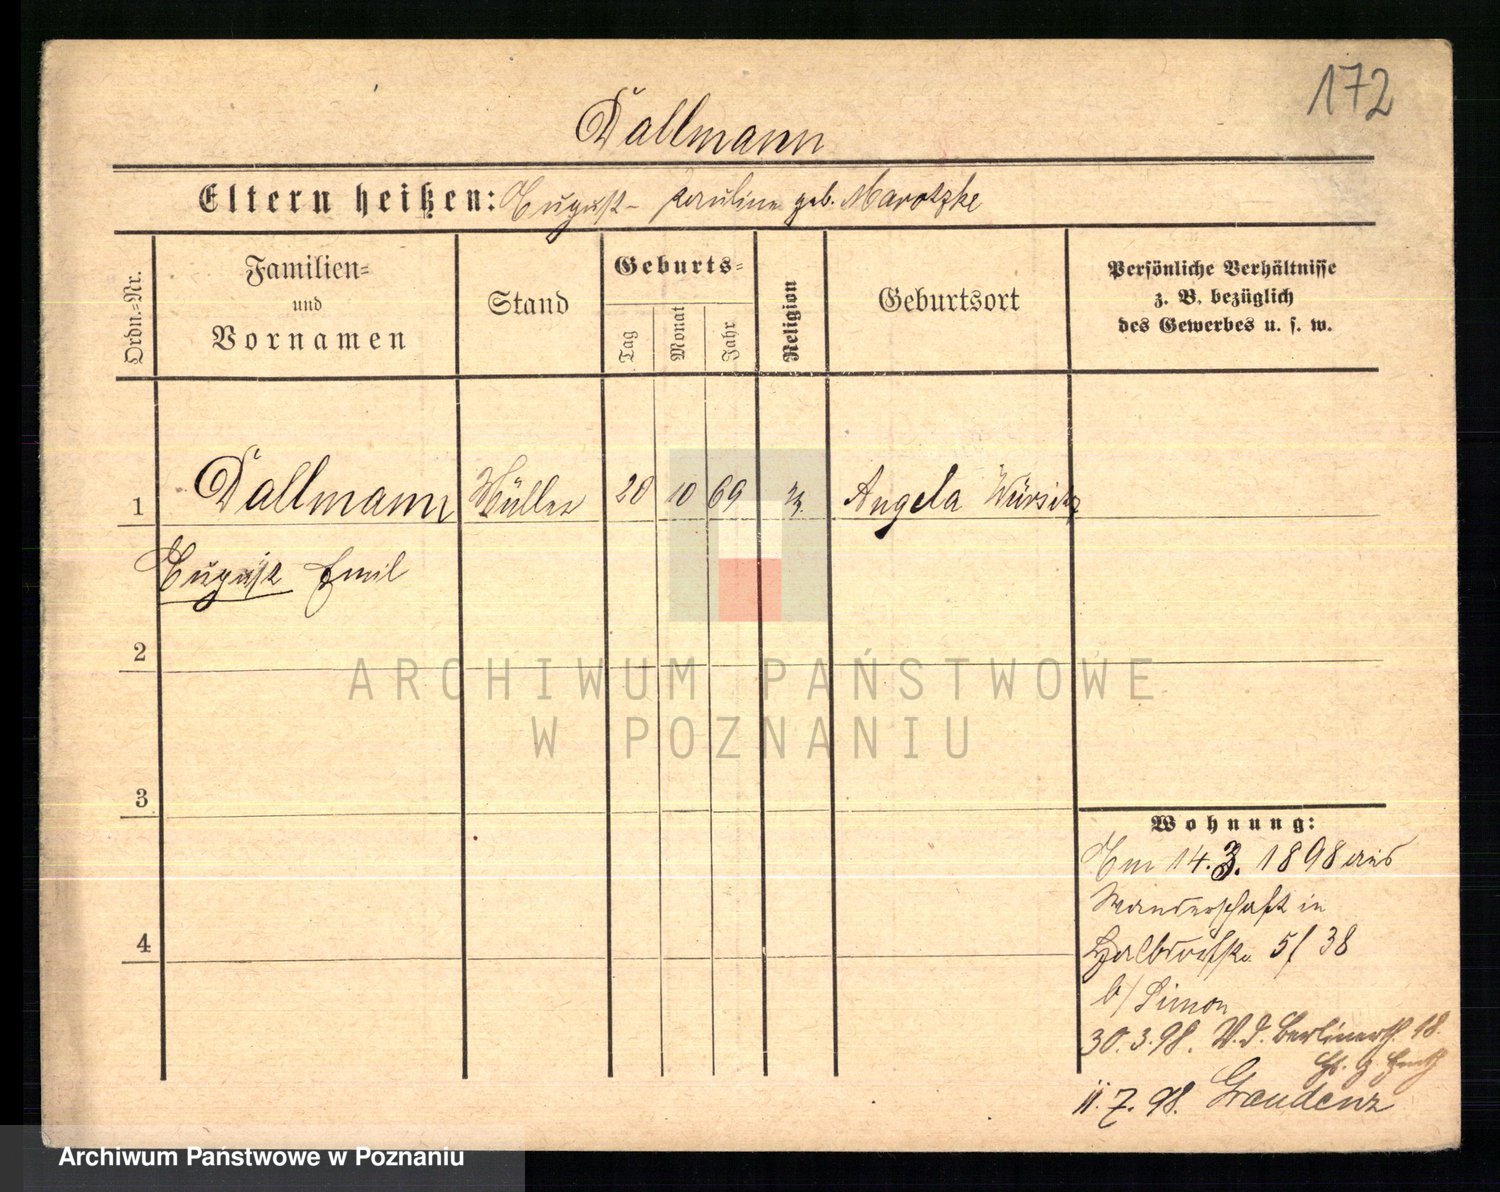 172
Dallmann
Eltern heißen: August - Pauline geb. Marotzke
Ordn.-Nr.
Familien- und Vornamen
Stand
Geburts-
Tag
Monat
Jahr
Religion
Geburtsort
Persönliche Verhältnisse
z. B. bezüglich
des Gewerbes u. s. w.
1 Dallmann Müller 20 10 69 Angela Wirsitz
August Emil
2
3
4
Wohnung:
Am 14.3.1898 aus
Wanderschaft in
Halbdorfstr. 5/ 38
b/ Simon
30.3.98. V.d. Berlinerth. 18.
11.7.98. Graudenz
ARCHIWUM PAŃSTWOWE
W POZNANIU
Archiwum Państwowe w Poznaniu